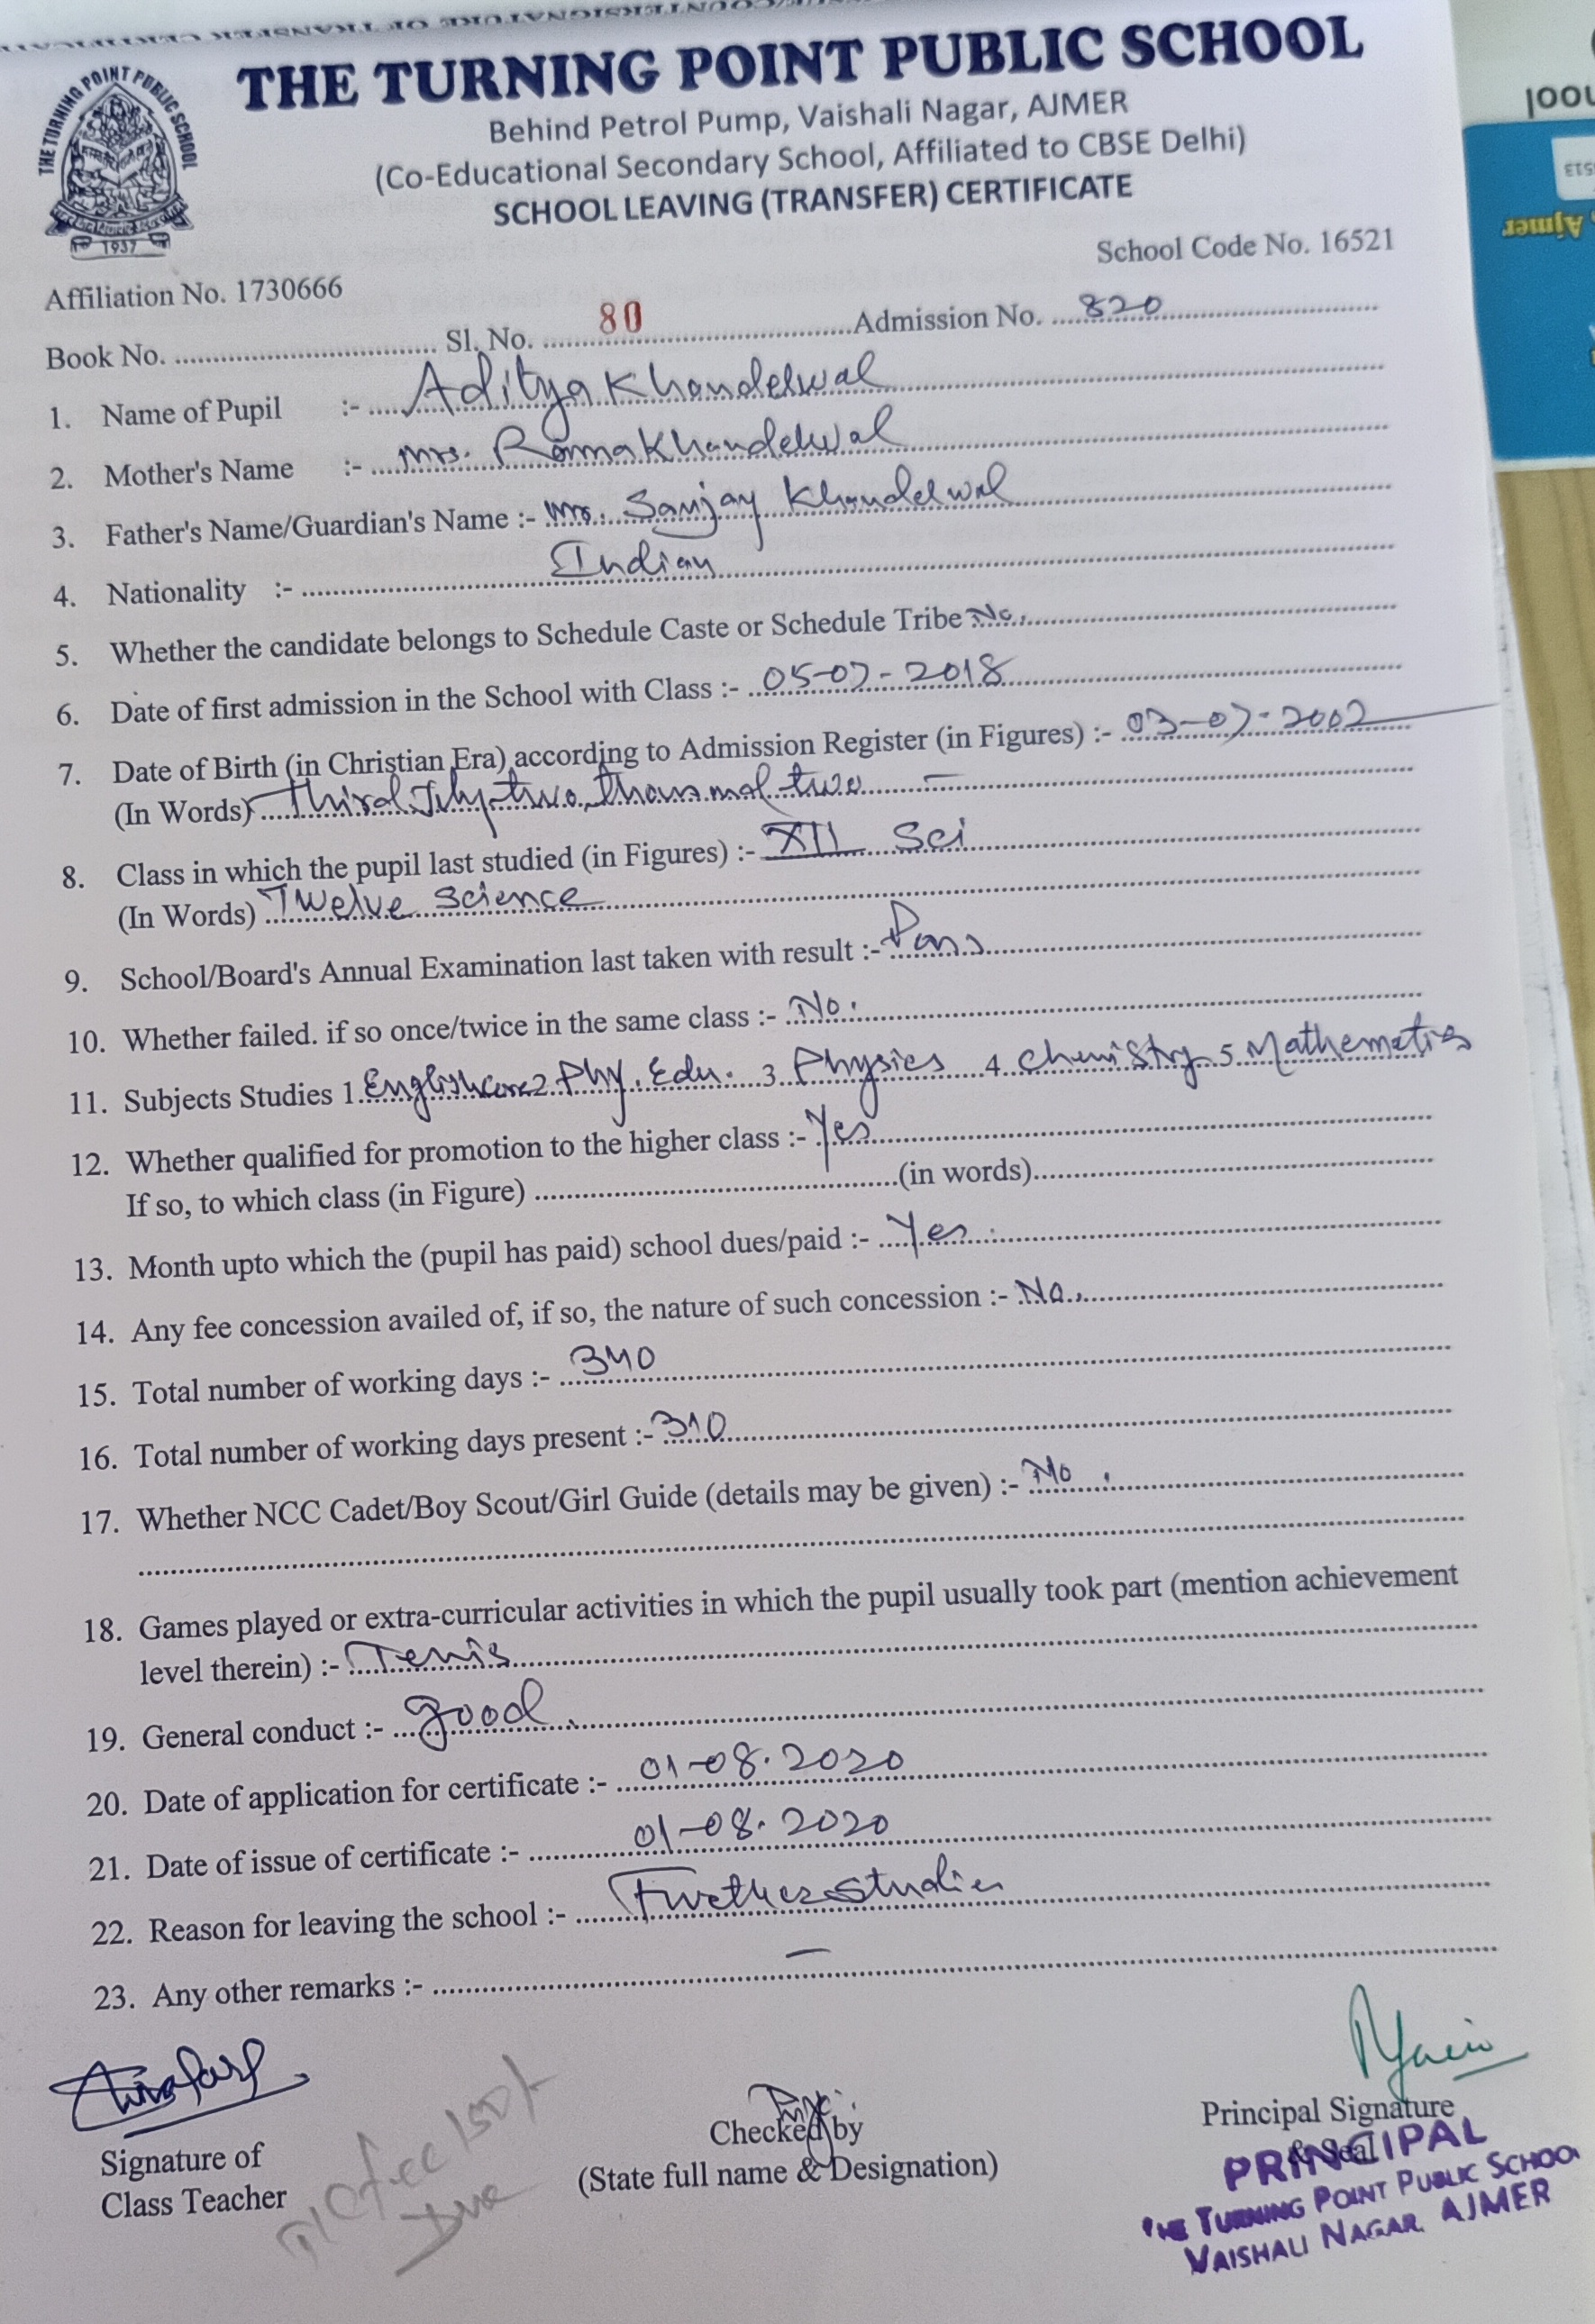 COUNTERSIGNATURE OF TRANSFER CERTIFICATE
THE TURNING POINT PUBLIC SCHOOL
1937
THE TURNING POINT PUBLIC SCHOOL
Behind Petrol Pump, Vaishali Nagar, AJMER
(Co-Educational Secondary School, Affiliated to CBSE Delhi)
SCHOOL LEAVING (TRANSFER) CERTIFICATE
School Code No. 16521
Affiliation No. 1730666
Book No. Sl. No. 80 Admission No. 820
1. Name of Pupil :- Aditya Khandelwal
2. Mother's Name :- Mrs. Rama Khandelwal
3. Father's Name/Guardian's Name :- Mr. Sanjay Khandelwal
4. Nationality :- Indian
5. Whether the candidate belongs to Schedule Caste or Schedule Tribe No.
6. Date of first admission in the School with Class :- 05-07-2018
7. Date of Birth (in Christian Era) according to Admission Register (in Figures) :- 03-07-2002
(In Words) Third July two thousand two
8. Class in which the pupil last studied (in Figures) :- XII Sci
(In Words) Twelve Science
9. School/Board's Annual Examination last taken with result :- Pass
10. Whether failed. if so once/twice in the same class :- No.
11. Subjects Studies 1. English Core 2 Phy. Edu. 3 Physics 4 Chemistry 5 Mathematics
12. Whether qualified for promotion to the higher class :- Yes
If so, to which class (in Figure) (in words)
13. Month upto which the (pupil has paid) school dues/paid :- Yes
14. Any fee concession availed of, if so, the nature of such concession :- No.
15. Total number of working days :- 340
16. Total number of working days present :- 310
17. Whether NCC Cadet/Boy Scout/Girl Guide (details may be given) :- No.
18. Games played or extra-curricular activities in which the pupil usually took part (mention achievement
level therein) :- Tenis
19. General conduct :- good
20. Date of application for certificate :- 01-08.2020
21. Date of issue of certificate :- 01-08.2020
22. Reason for leaving the school :- Further studies
23. Any other remarks :- —
Signature of
Class Teacher
fee 150/-
Due
Checked by
(State full name & Designation)
Principal Signature
& Seal
PRINCIPAL
THE TURNING POINT PUBLIC SCHOOL
VAISHALI NAGAR, AJMER
Ajmer